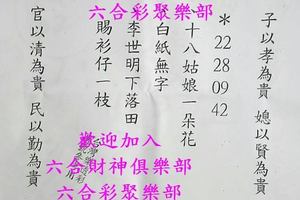 六合彩聚樂部
子以孝為貴 媳以賢為貴
＊22 28 09 42
十八姑娘一朵花
白紙無字
李世明下落田
賜衫仔一枝
官以清為貴 民以勤為貴
歡迎加入
六合財神俱樂部
六合彩聚樂部